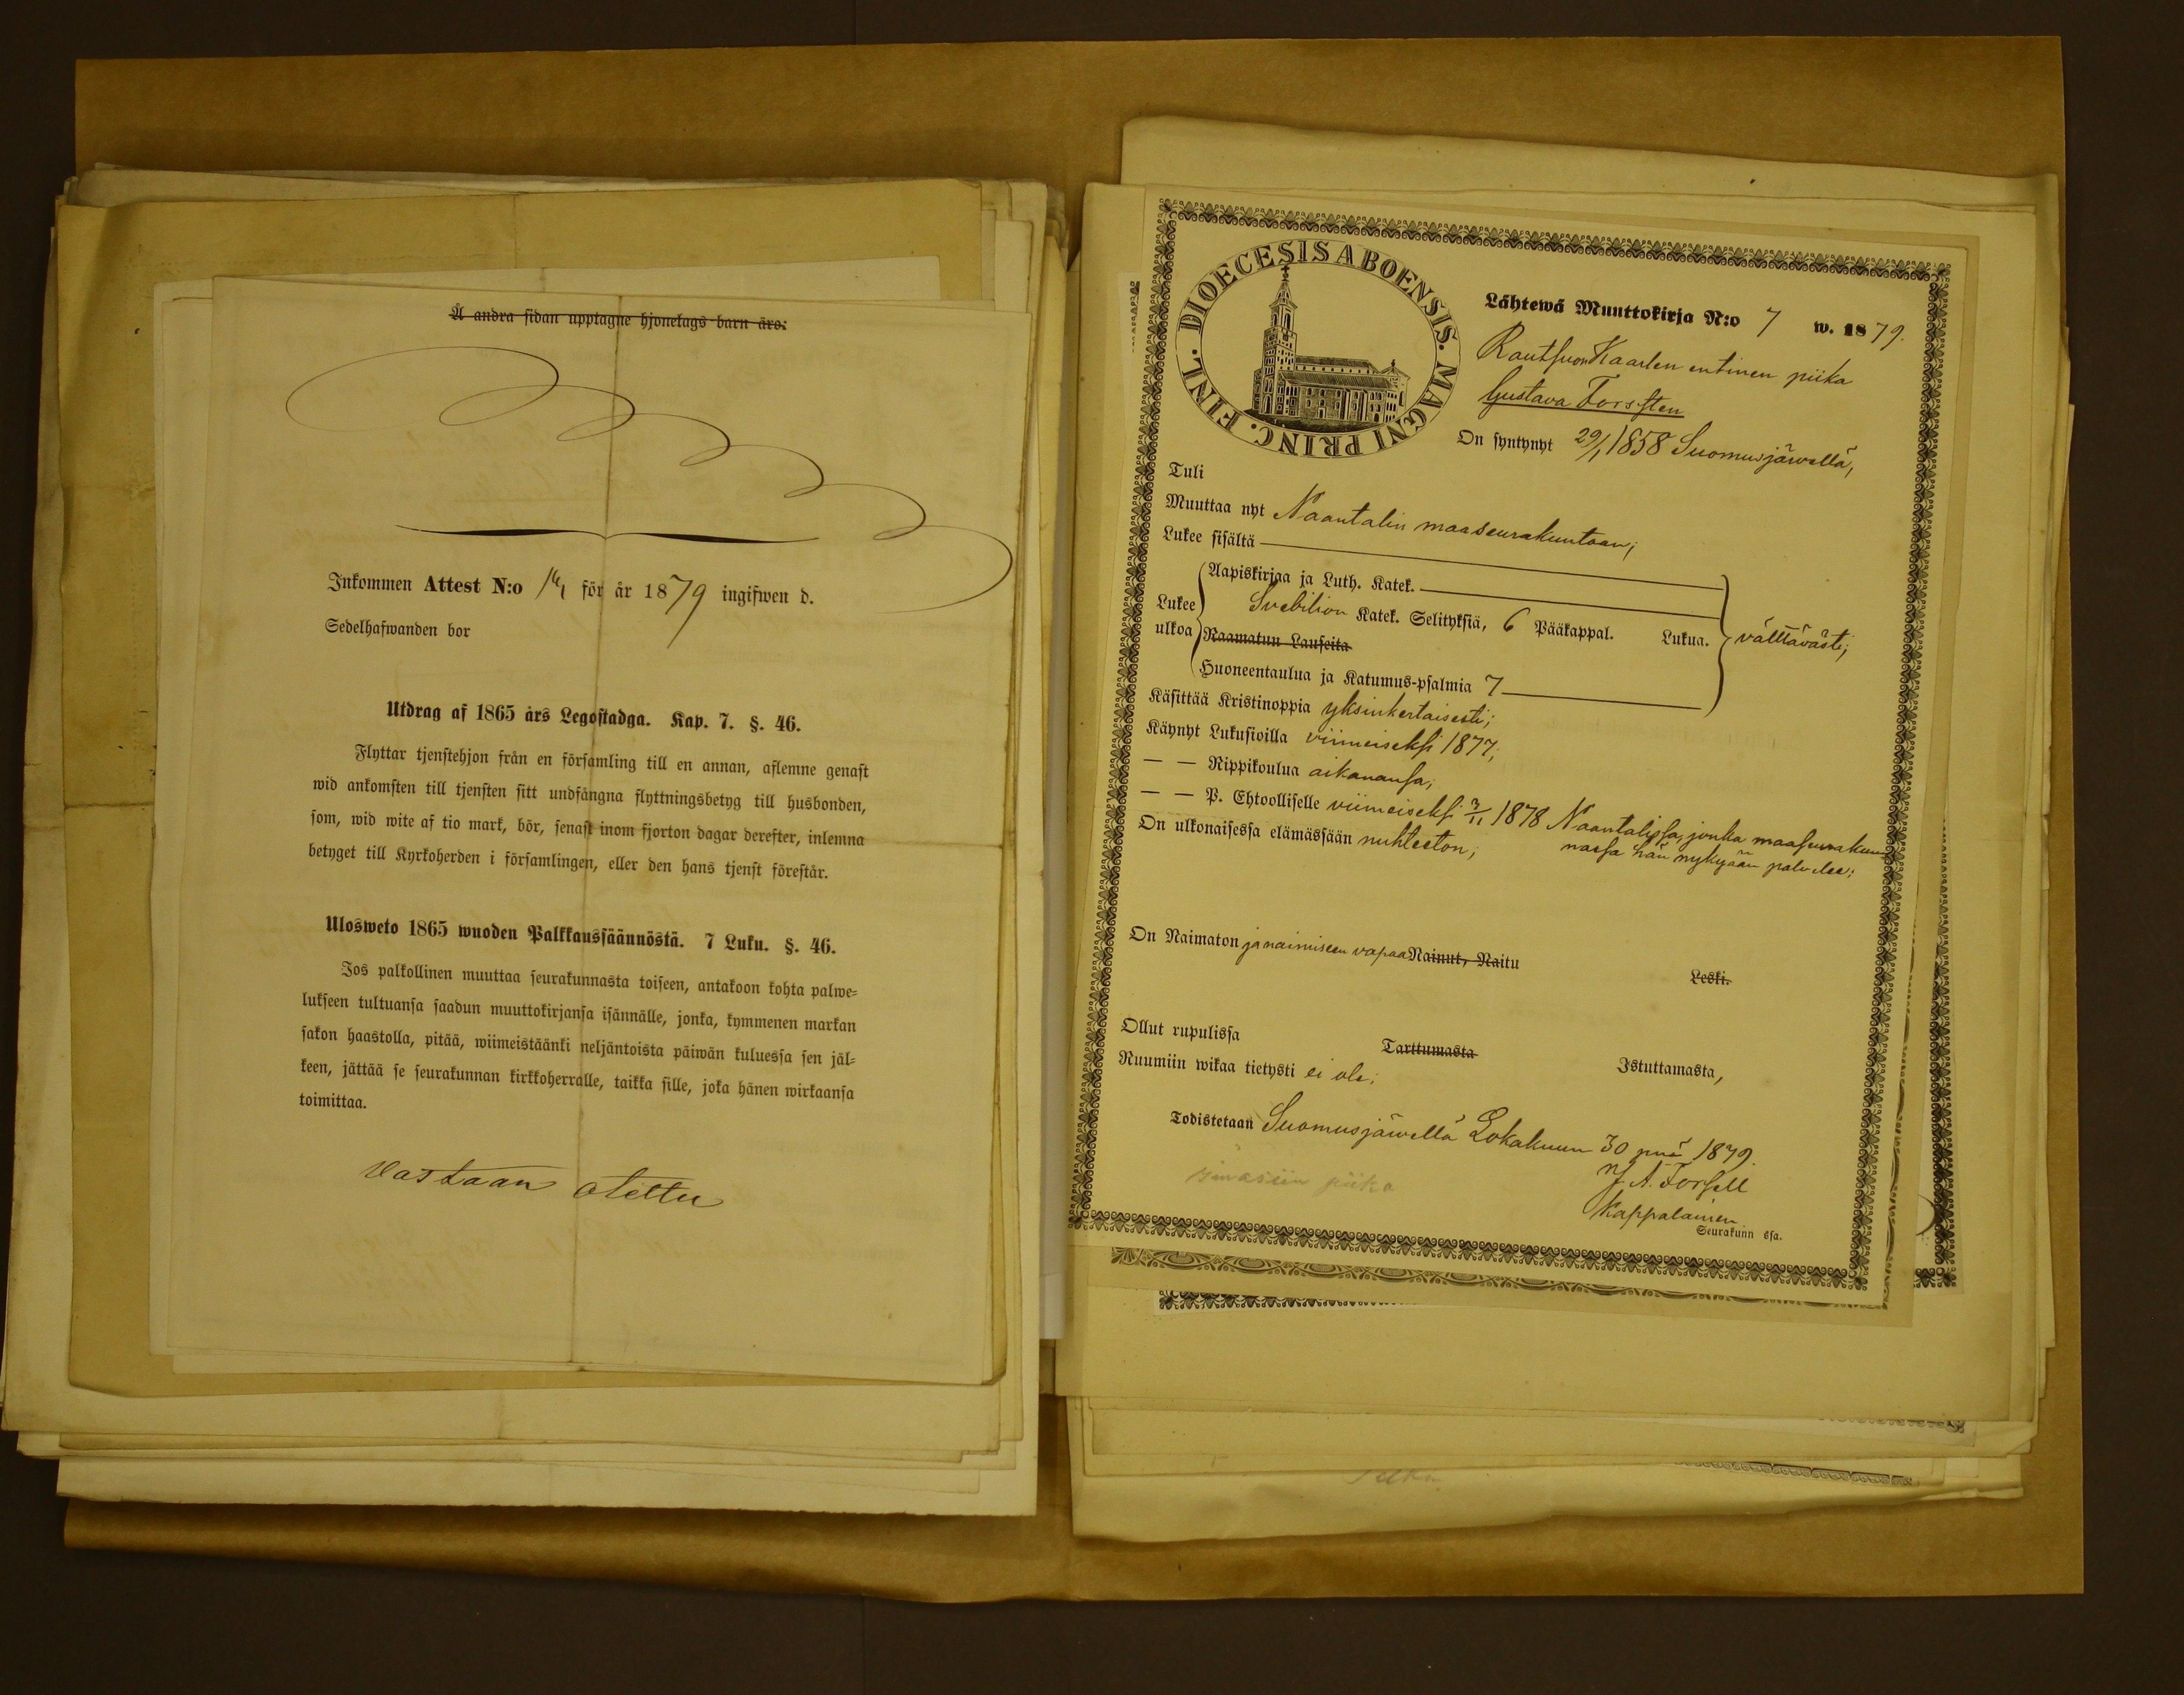 Å andra sidan upptagne hjonelags barn äro:
Inkommen Attest N:o för år 1879 ingifwen d.
Sedelhafwanden bor
Utdrag af 1865 års Legostadga. Kap. 7. §. 46.
Flyttar tjenstehjon från en församling till en annan, aflemne genast
wid ankomsten till tjensten sitt undfångna flyttningsbetyg till husbonden,
som, wid wite af tio mark, bör, senast inom fjorton dagar derefter, inlemna
betyget till Kyrkoherden i församlingen, eller den hans tjenst förestår.
Ulosweto 1865 wuoden Palkkaussäännöstä. 7 Luku. §. 46.
Jos palkollinen muuttaa seurakunnasta toiseen, antakoon kohta palwe=
lukseen tultuansa saadun muuttokirjansa isännälle, jonka, kymmenen markan
sakon haastolla, pitää, wiimeistäänki neljäntoista päiwän kuluessa sen jäl=
keen, jättää se seurakunnan kirkkoherralle, taikka sille, joka hänen wirkaansa
toimittaa.
Vastaan otettu
DIOECESIS ABOENSIS. MAGNI PRINC. FINL.
Lähtewä Muuttokirja N:o 7 w. 1879.
Rautsuon Kaarlen entinen piika
Gustava Forssten
On syntynyt 29/1 1858 Suomusjärwellä,
Tuli
Muuttaa nyt Naantalin maaseurakuntaan;
Lukee sisältä
Lukee ulkoa
Aapiskirjaa ja Luth. Katek.
Svebilion Katek. Selityksiä, 6 Pääkappal. Lukua. välttävästi;
Raamatun Lauseita
Huoneentaulua ja Katumus-psalmia 7
Käsittää Kristinoppia yksinkertaisesti;
Käynyt Lukusioilla viimeiseksi 1877;
— — Rippikoulua aikanansa;
— — P. Ehtoolliselle viimeiseksi 3/11 1878 Naantalissa, jonka maaseurakun-
nassa hän nykyään palvelee;
On ulkonaisessa elämässään nuhteeton;
On Naimaton ja naimiseen vapaa Nainut, Naitu Leski.
Ollut rupulissa Tarttumasta Istuttamasta,
Ruumiin wikaa tietysti ei ole;
Todistetaan Suomusjärwellä Lokakuun 30 pnä 1879.
Forsell
Kappalainen
Seurakunn ssa.
piika